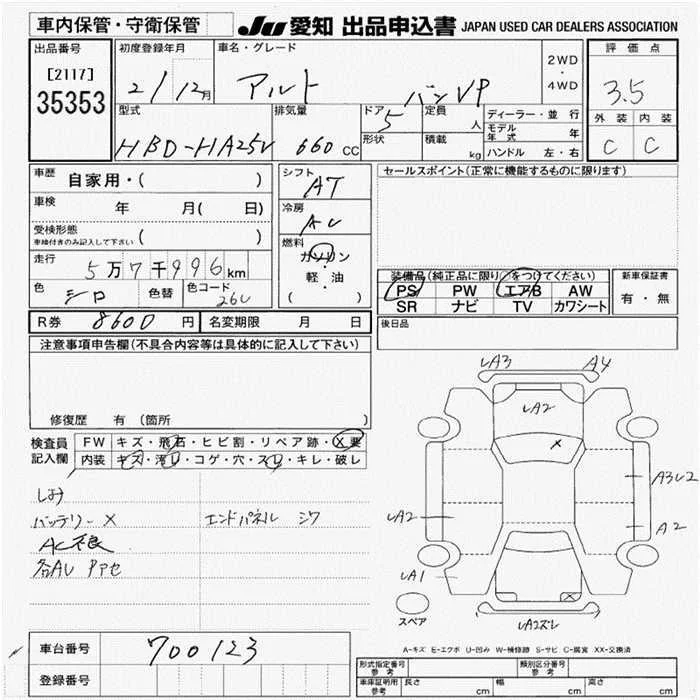 車内保管・守衛保管
JU 愛知 出品申込書 JAPAN USED CAR DEALERS ASSOCIATION
出品番号
[2117]
35353
初度登録年月
21/12月
車名・グレード
アルト バンVP
2WD
・
4WD
評価点
3.5
外装 内装
C C
型式
HBD-HA25V
排気量
660 CC
ドア
5
形状
定員
人
積載
kg
ディーラー・並行
モデル年式 年
ハンドル 左・右
車歴
自家用・( )
車検
年 月( 日)
受検形態
車検付きのみ記入して下さい ( )
走行
5万7千996km
色
シロ
色替
色コード
26U
シフト
AT
冷房
AC
燃料
ガソリン
・
軽・油
( )
セールスポイント(正常に機能するものに限ります)
装備品(純正品に限り○をつけてください)
PS PW エアB AW
SR ナビ TV カワシート
新車保証書
有・無
R券 8600 円
名変期限 月 日
後日品
注意事項申告欄(不具合内容等は具体的に記入して下さい)
修復歴 有 (箇所 )
検査員記入欄
FW キズ・飛石・ヒビ割・リペア跡・X要
内装 キズ・汚れ・コゲ・穴・スレ・キレ・破レ
しみ
バッテリー X エンドパネル シワ
AC不良
各AU
A4
A2
スペア
A-キズ E-エクボ U-凹み W-補修跡 S-サビ C-腐食 XX-交換済
車台番号
700123
登録番号
形式指定番号 参考
類別区分番号 参考
車庫証明用 参考 長さ cm 幅 cm 高さ cm